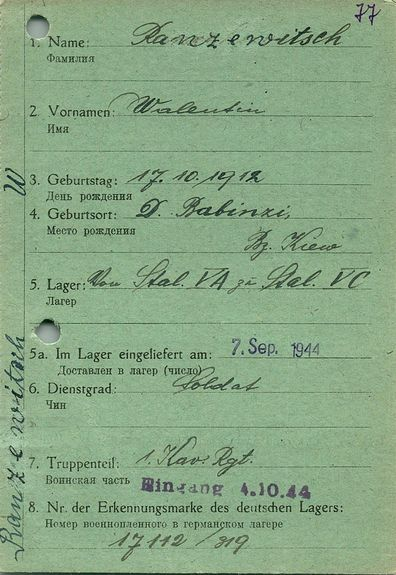 77
1. Name: Ranzewitsch
Фамилия
2. Vornamen: Walentin
Имя
3. Geburtstag: 17.10.1912
День рождения
4. Geburtsort: D. Babinzi,
Место рождения
Bz. Kiew
5. Lager: Von Stal. VA zu Stal. VC
Лагер
5a. Im Lager eingeliefert am: 7. Sep. 1944
Доставлен в лагер (число)
6. Dienstgrad: Soldat
Чин
7. Truppenteil: 1. Kav. Rgt.
Воинская часть
Eingang 4.10.44
8. Nr. der Erkennungsmarke des deutschen Lagers:
Номер военнопленного в германском лагере
17112 /319
Ranzewitsch W